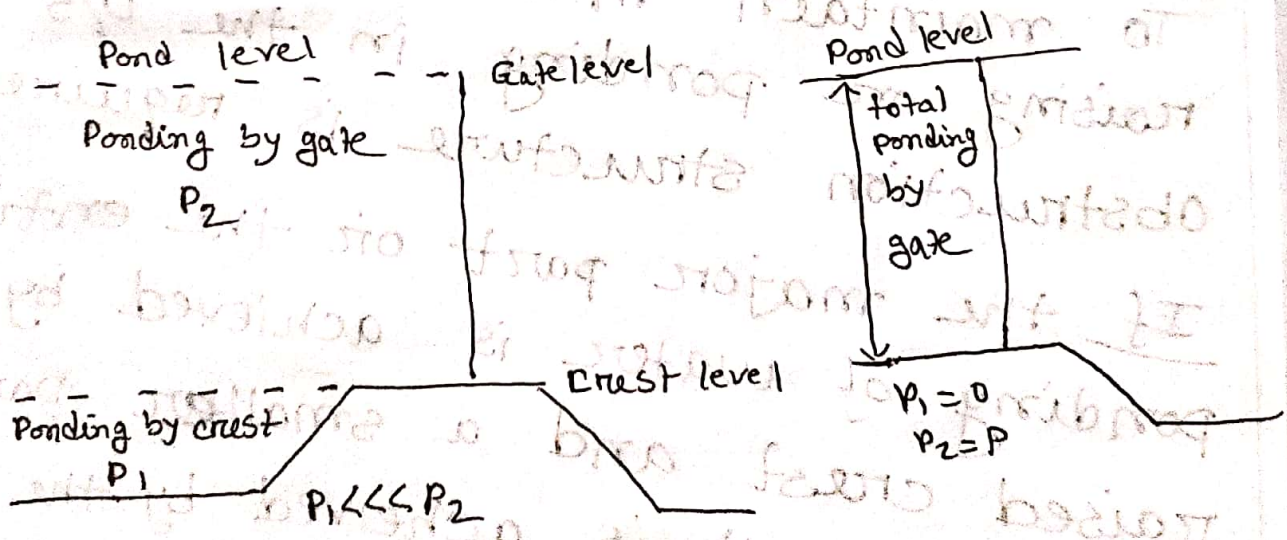 Pond level
Gate level
Ponding by gate
P2
Crest level
Ponding by crest
P1
P1<<<P2
Pond level
total
ponding
by
gate
P1 = 0
P2 = P